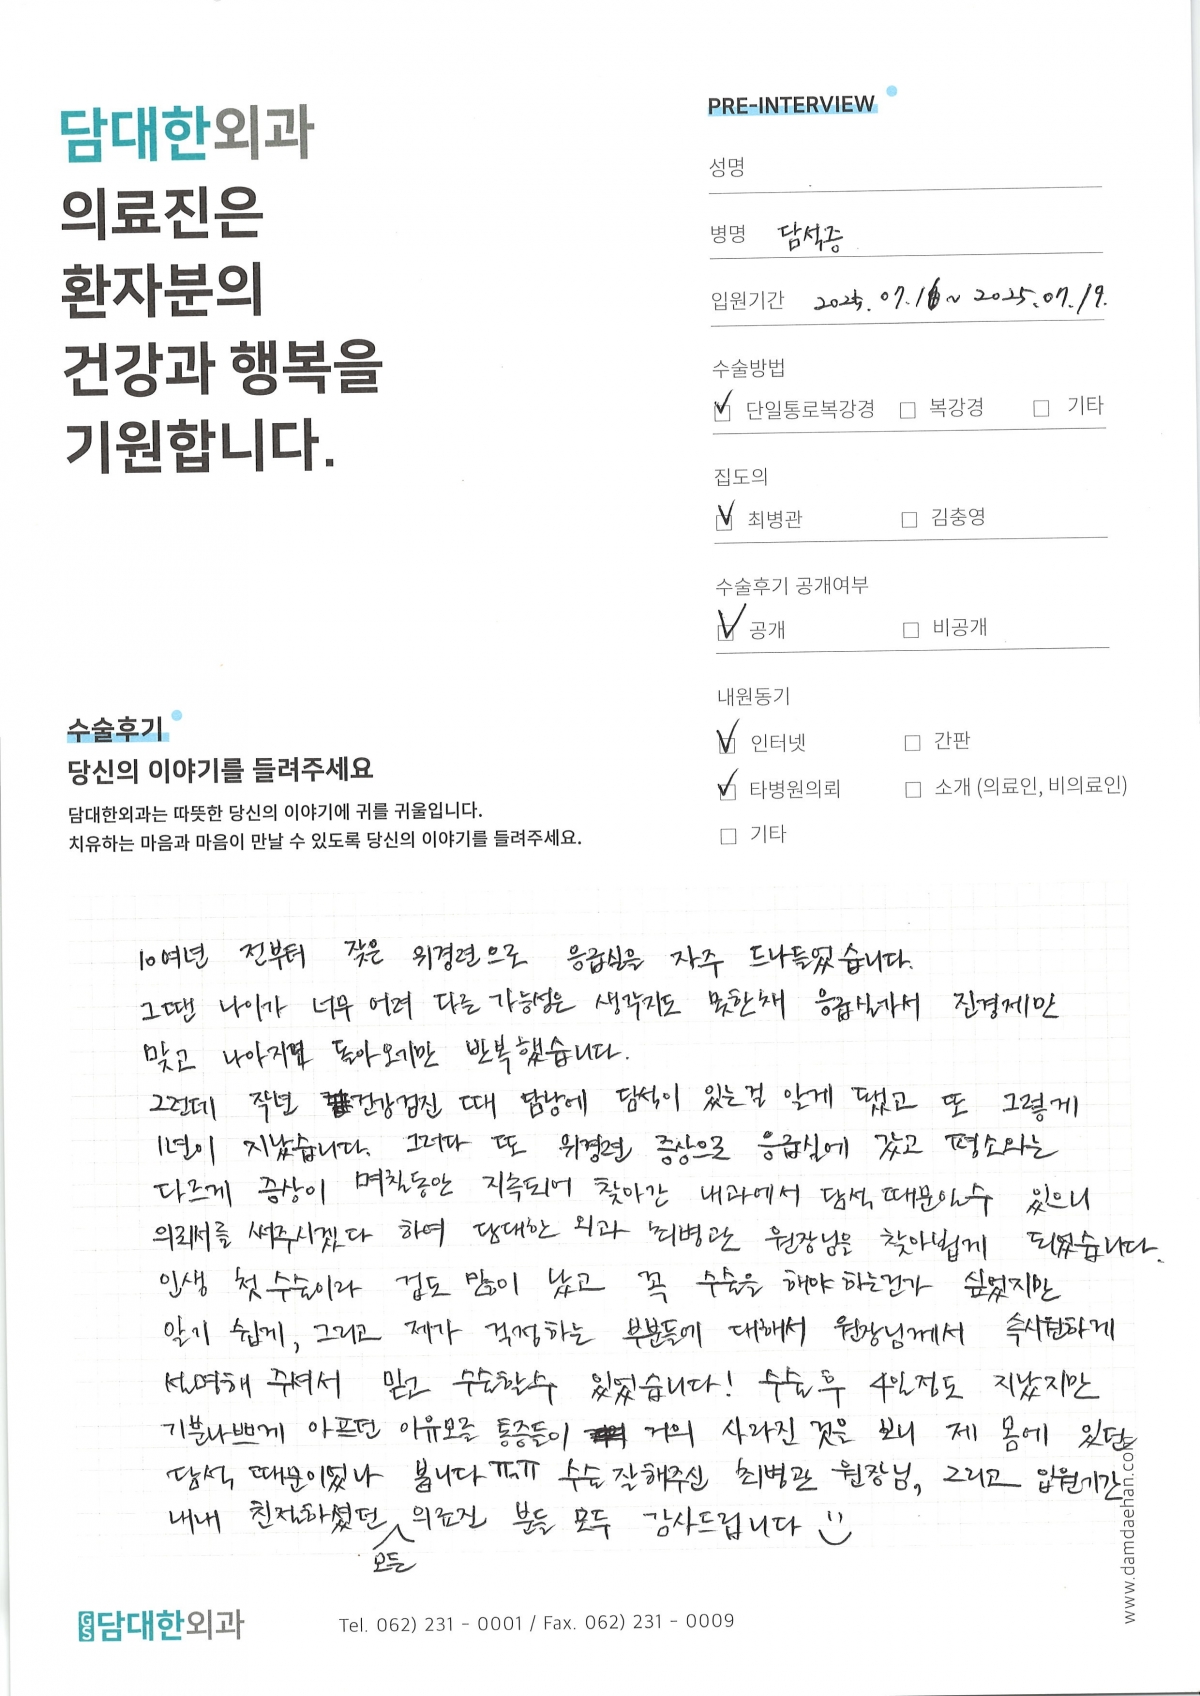 담대한외과
의료진은
환자분의
건강과 행복을
기원합니다.
PRE-INTERVIEW
성명
병명 담석증
입원기간 2025.07.16~2025.07.19.
수술방법
☑ 단일통로복강경 □ 복강경 □ 기타
집도의
☑ 최병관 □ 김충영
수술후기 공개여부
☑ 공개 □ 비공개
내원동기
☑ 인터넷 □ 간판
☑ 타병원의뢰 □ 소개 (의료인, 비의료인)
□ 기타
수술후기
당신의 이야기를 들려주세요
담대한외과는 따뜻한 당신의 이야기에 귀를 귀울입니다.
치유하는 마음과 마음이 만날 수 있도록 당신의 이야기를 들려주세요.
10여년 전부터 잦은 위경련으로 응급실을 자주 드나들었습니다.
그땐 나이가 너무 어려 다른 가능성은 생각지도 못한채 응급실가서 진경제만
맞고 나아지면 돌아오기만 반복했습니다.
그런데 작년 건강검진 때 담낭에 담석이 있는걸 알게 됐고 또 그렇게
1년이 지났습니다. 그러다 또 위경련 증상으로 응급실에 갔고 평소와는
다르게 증상이 며칠동안 지속되어 찾아간 내과에서 담석 때문일수 있으니
의뢰서를 써주시겠다 하여 담대한 외과 최병관 원장님을 찾아뵙게 되었습니다.
인생 첫 수술이라 겁도 많이 났고 꼭 수술을 해야 하는건가 싶었지만
알기 쉽게, 그리고 제가 걱정하는 부분들에 대해서 원장님께서 속시원하게
설명해 주셔서 믿고 수술할수 있었습니다! 수술 후 4일정도 지났지만
기분나쁘게 아프던 이유모를 통증들이 거의 사라진 것을 보니 제 몸에 있던
담석 때문이었나 봅니다ㅠㅠ 수술 잘해주신 최병관 원장님, 그리고 입원기간
내내 친절하셨던 모든 의료진 분들 모두 감사드립니다 :)
GS담대한외과
Tel. 062) 231 - 0001 / Fax. 062) 231 - 0009
www.damdaehan.com